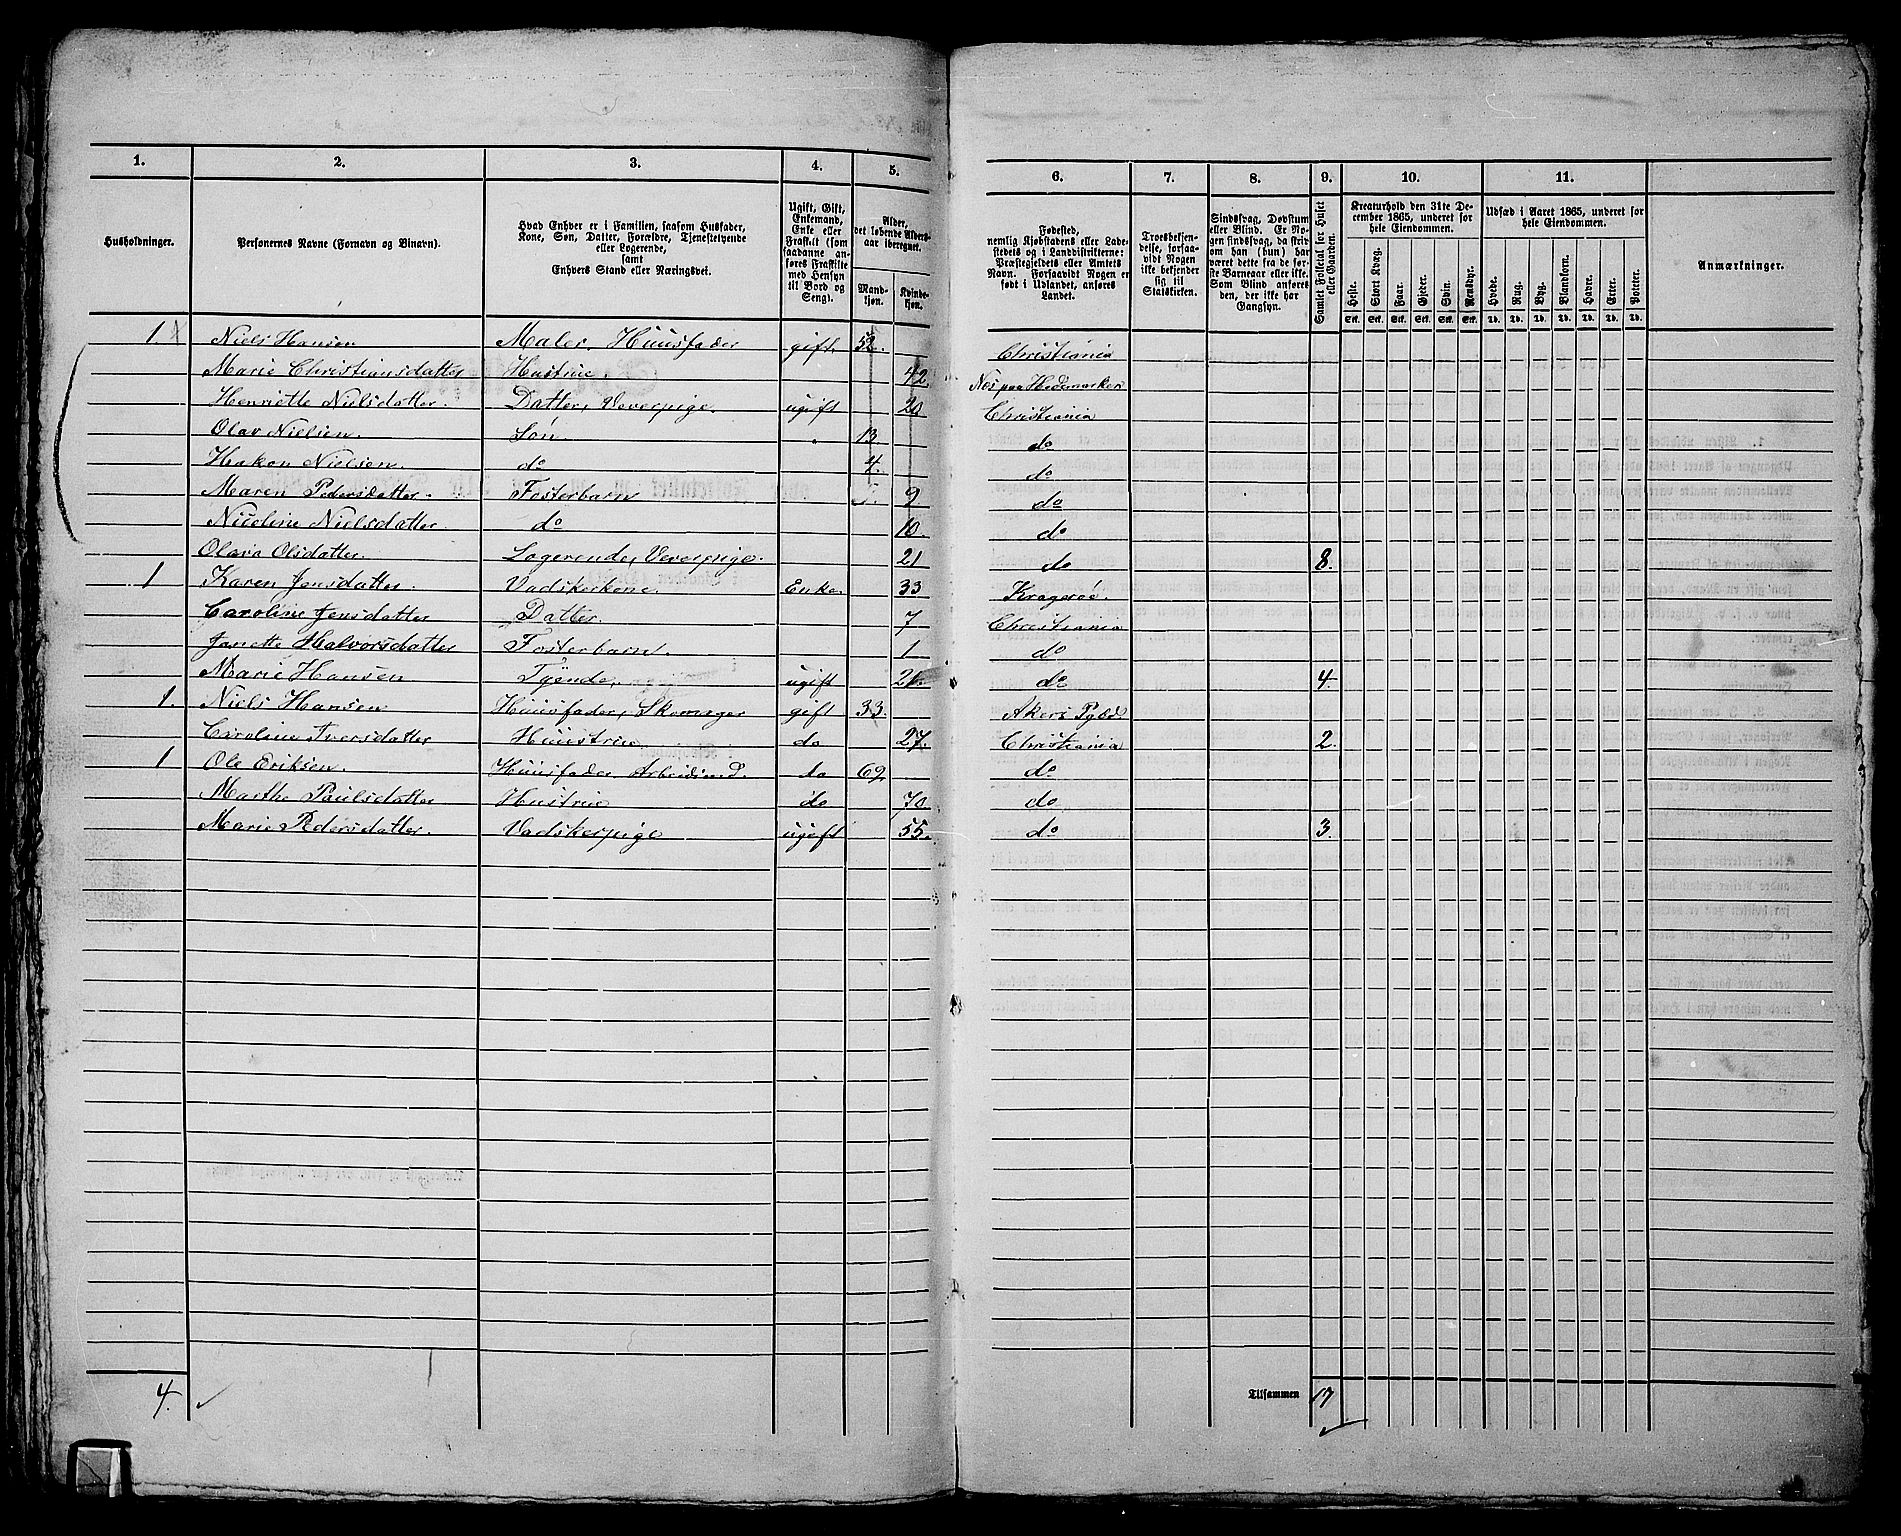 1. 2. 3. 4. 5. 6. 7. 8. 9. 10. 11.
Husholdninger.
Personernes Navne (Fornavn og Binavn).
Hvad Enhver er i Familien, saasom Husfader,
Kone, Søn, Datter, Forældre, Tjenestetyende
eller Logerende,
samt
Enhvers Stand eller Næringsvei.
Ugift, Gift,
Enkemand,
Enke eller
Fraskilt (som
saadanne an-
føres Fraskilte
med Hensyn
til Bord og
Seng).
Alder,
det løbende Alders-
aar iberegnet.
Mand-
kjøn.
Kvinde-
kjøn.
Fødested,
nemlig Kjøbstadens eller Lade-
stedets og i Landdistrikterne:
Præstegjeldets eller Amtets
Navn. Forsaavidt Nogen er
født i Udlandet, anføres
Landet.
Troesbekjen-
delse, forsaa-
vidt Nogen
ikke bekjender
sig til
Statskirken.
Sindssvag, Døvstum
eller Blind. Er No-
gen sindssvag, da skriv
om han (hun) har
været dette fra de før-
ste Barneaar eller ikke.
Som Blind anføres
den, der ikke har
Gangsyn.
Samlet Folketal for Huset
eller Gaarden.
Kreaturhold den 31te De-
cember 1865, underet for
hele Eiendommen.
Heste. Stort Kvæg. Faar. Gjeder. Svin. Rensdyr.
Stk. Stk. Stk. Stk. Stk. Stk.
Udsæd i Aaret 1865, underet for
hele Eiendommen.
Hvede. Rug. Byg. Blandkorn. Havre. Erter. Poteter.
Td. Td. Td. Td. Td. Td. Td.
Anmærkninger.
1. Niels Hansen Maler, Huusfader gift. 52. Christiania
Marie Christiansdatter Hustrue. 42. Nes paa Hedemarken
Henriette Nielsdatter. Datter, Veverpige. ugift 20 Christiania
Olav Nielsen. Søn. 13. do
Hakon Nielsen. do 4. do
Maren Pedersdatter. Fosterbarn 9 do
Nicoline Nielsdatter. do 10. do
Olava Olsdatter. Logerende, Veverpige. 21 do 8.
1 Karen Jensdatter. Vadskerkone. Enke. 33 Kragerøe.
Caroline Jensdatter Datter. 7 Christiania
Janette Halvorsdatter Fosterbarn. 1 do
Marie Hansen Tyende, ugift 21. do 4.
1. Niels Hansen Huusfader, Skomager gift 33. Akers Pgjæld
Caroline Iversdatter Huustrue. do 27. Christiania 2.
1 Ole Eriksen. Huusfader, Arbeidsmd. do 62. do
Marthe Paulsdatter Hustrue do 70 do
Marie Pedersdatter. Vadskerpige ugift 55. do 3.
4. Tilsammen 17